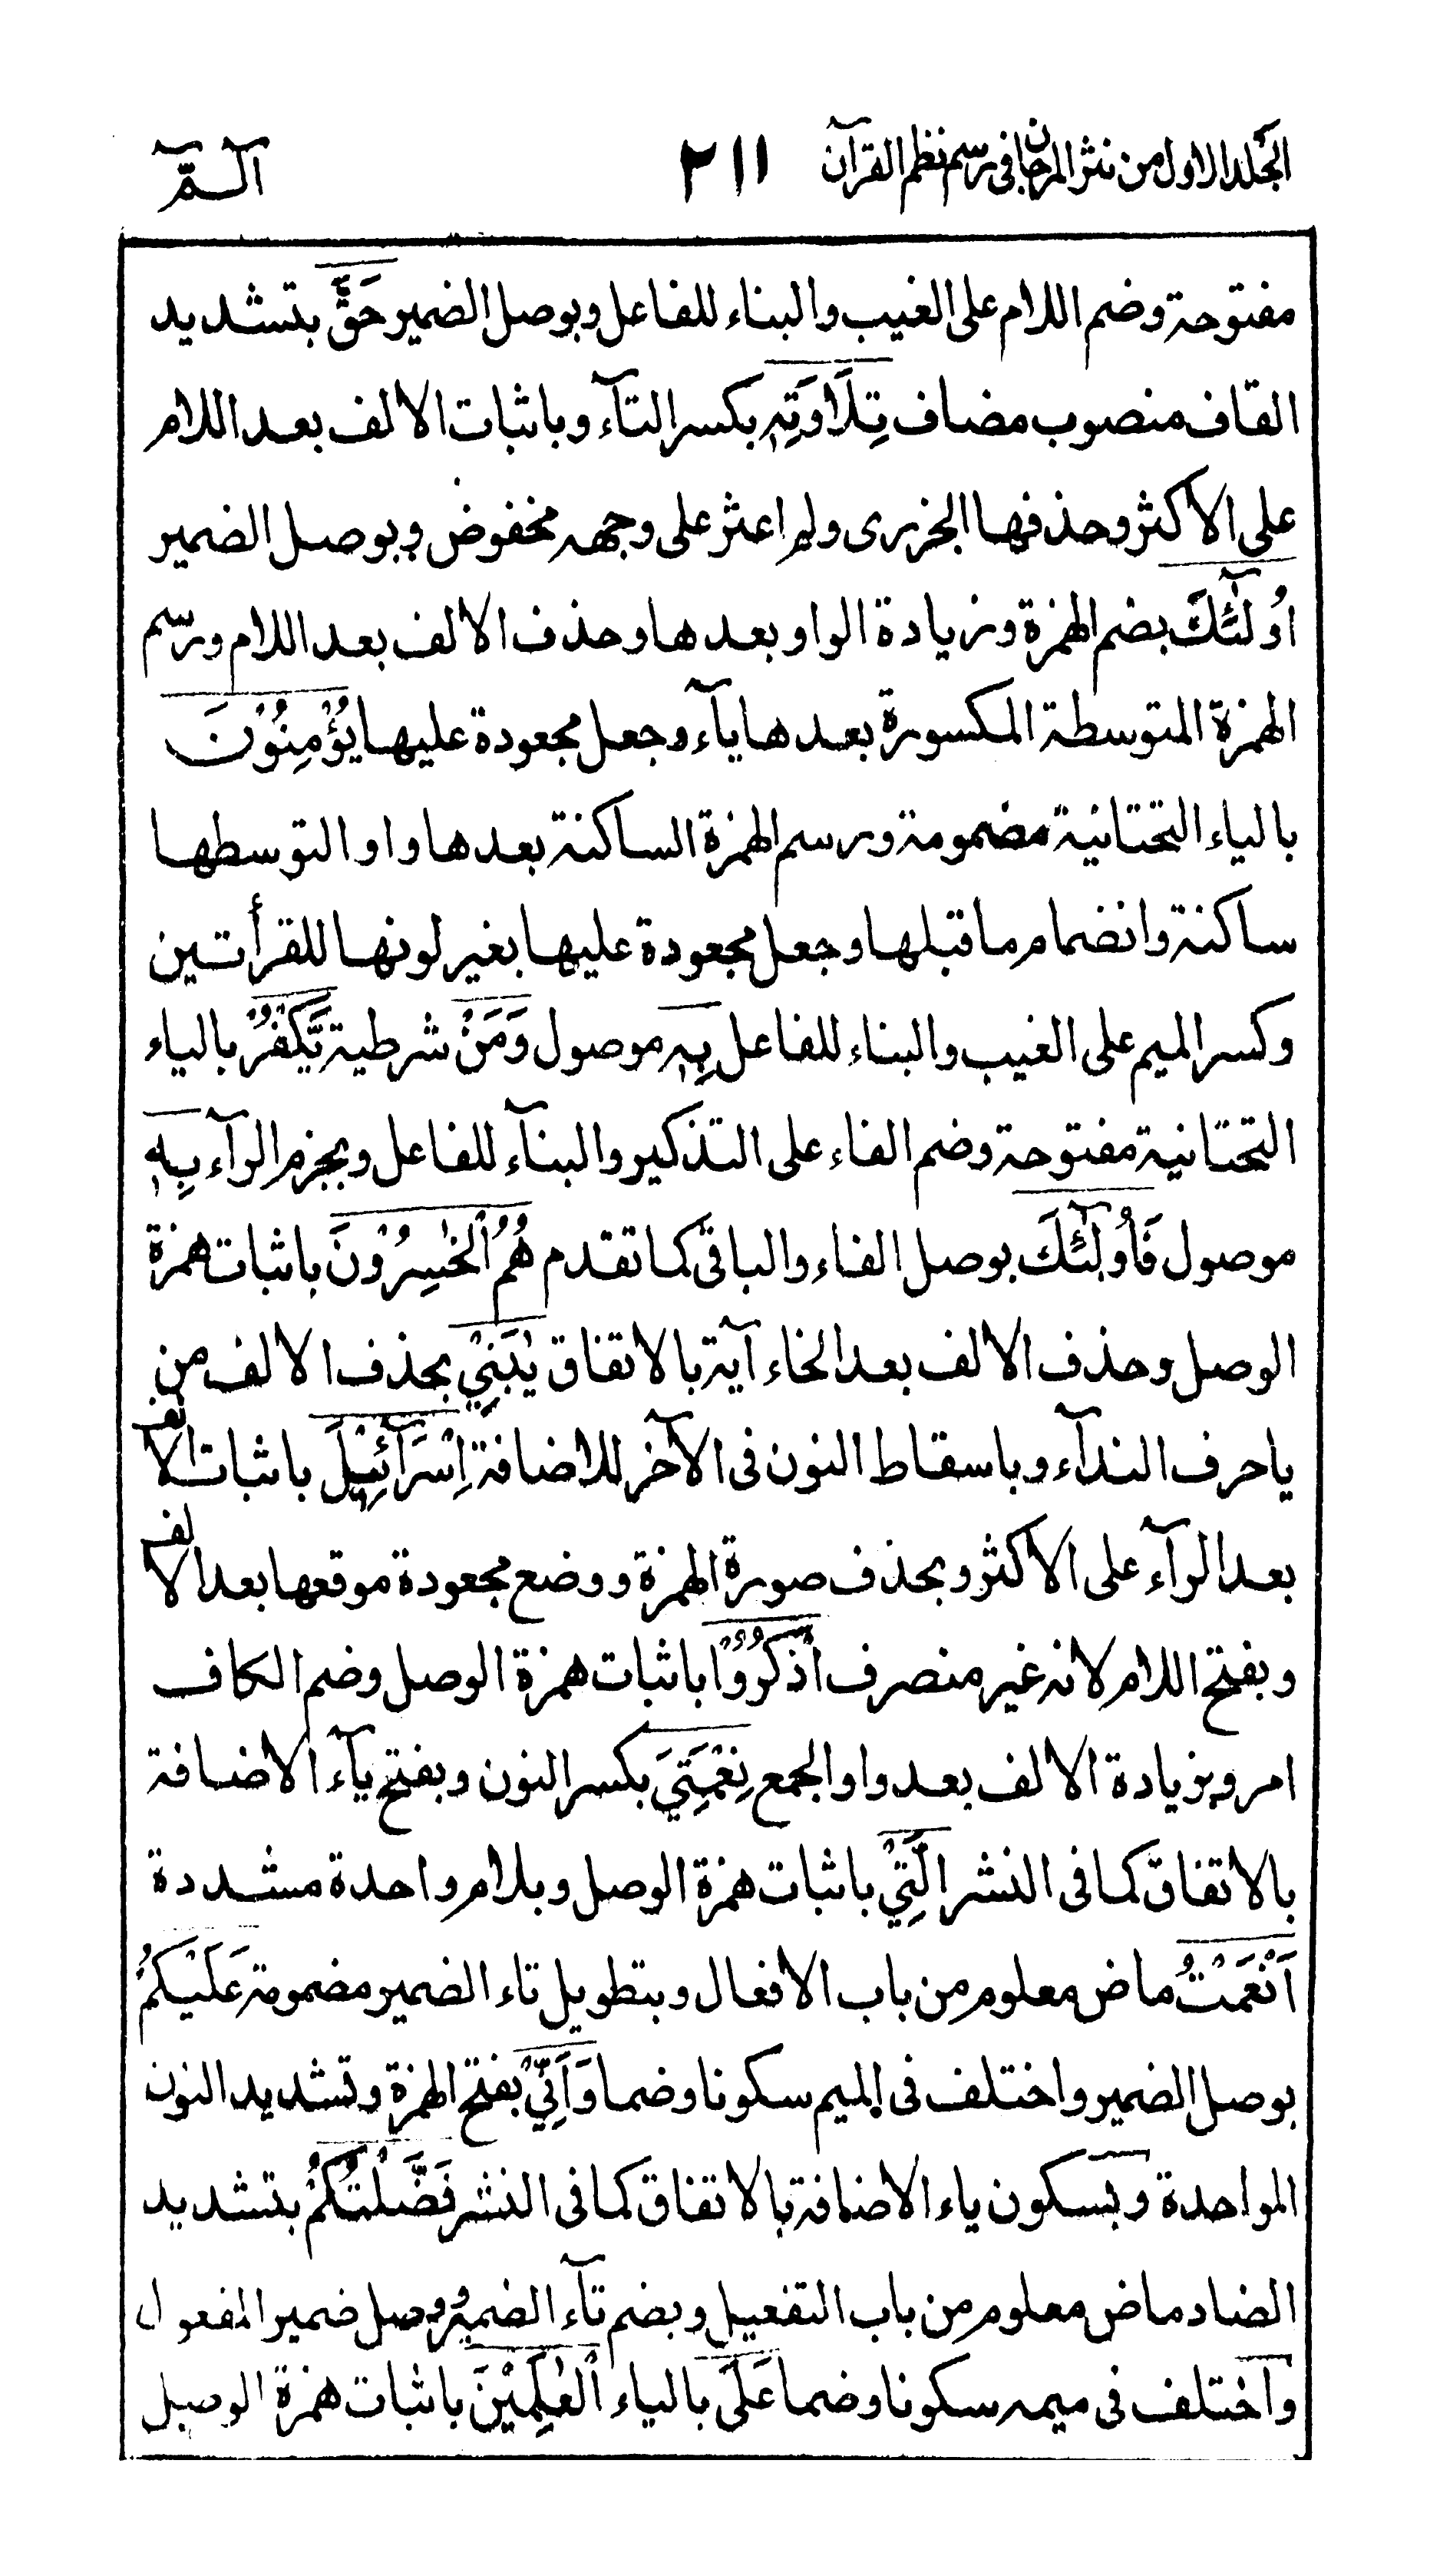 المجلد الاول من نثر المرجان فى رسم نظم القرآن ٢١١ آلـمّٓ
مفتوحة وضم اللام على الغيب والبناء للفاعل وبوصل الضمير حَقَّ بتشديد
القاف منصوب مضاف تِلَاوَتِهٖ بكسر التآء وباثبات الالف بعد اللام
على الاكثر وحذفها الجزرى ولم اعثر على وجهه مخفوض وبوصل الضمير
اُولٰٓئِكَ بضم الهمزة وزيادة الواو بعدها وحذف الالف بعد اللام ورسم
الهمزة المتوسطة المكسورة بعدها يآء وجعل مجعودة عليها يُؤْمِنُوْنَ
بالياء التحتانية مضمومة ورسم الهمزة الساكنة بعدها واوا لتوسطها
ساكنة وانضمام ما قبلها وجعل مجعودة عليها بغير لونها للقرأتين
وكسر الميم على الغيب والبناء للفاعل بِهٖ موصول وَمَنْ شرطية يَّكْفُرْ بالياء
التحتانية مفتوحة وضم الفاء على التذكير والبنآء للفاعل وبجزم الرآء بِهٖ
موصول فَاُولٰٓئِكَ بوصل الفاء والباقى كما تقدم هُمُ الْخٰسِرُوْنَ باثبات همزة
الوصل وحذف الالف بعد الخاء آية بالاتفاق يٰبَنِيْ بحذف الالف من
يا حرف الندآء وباسقاط النون فى الآخر للاضافة اِسْرَآئِيْلَ باثبات الالف
بعد الرآء على الاكثر وبحذف صورة الهمزة ووضع مجعودة موقعها بعد الالف
وبفتح اللام لانه غير منصرف اذْكُرُوْا باثبات همزة الوصل وضم الكاف
امر وبزيادة الالف بعد واو الجمع نِعْمَتِيَ بكسر النون وبفتح يآء الاضافة
بالاتفاق كما فى النشر الَّتِيْ باثبات همزة الوصل وبلام واحدة مشددة
اَنْعَمْتُ ماض معلوم من باب الافعال وبتطويل تاء الضمير مضمومة عَلَيْكُمْ
بوصل الضمير واختلف فى الميم سكونا وضما وَاَنِّيْ بفتح الهمزة وتشديد النون
الواحدة وبسكون ياء الاضافة بالاتفاق كما فى النشر فَضَّلْتُكُمْ بتشديد
الضاد ماض معلوم من باب التفعيل وبضم تآء الضمير وبوصل ضمير المفعول
واختلف فى ميمه سكونا وضما عَلَى بالياء الْعٰلَمِيْنَ باثبات همزة الوصل